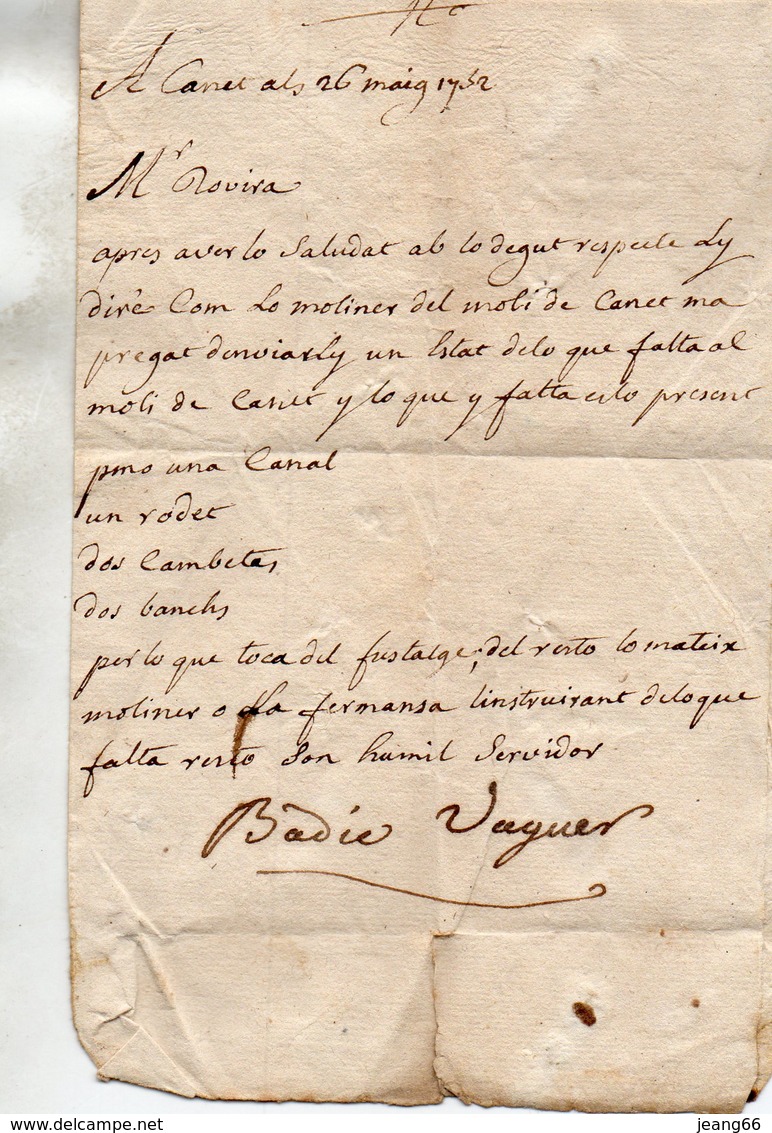 A Canet als 26 maig 1752
Mr Rovira
apres averlo Saludat ab lo degut respecte Ly
dirè Com Lo moliner del moli de Canet ma
pregat denviarLy un Estat delo que falta al
moli de Canet y lo que y falta es lo present
pmo una Canal
un rodet
dos Cambetes
dos banchs
per lo que toca del fustatge; del resto lo mateix
moliner o La fermansa linstruirant delo que
falta resto Son humil Servidor
Badie Vaguer
www.delcampe.net
jeang66